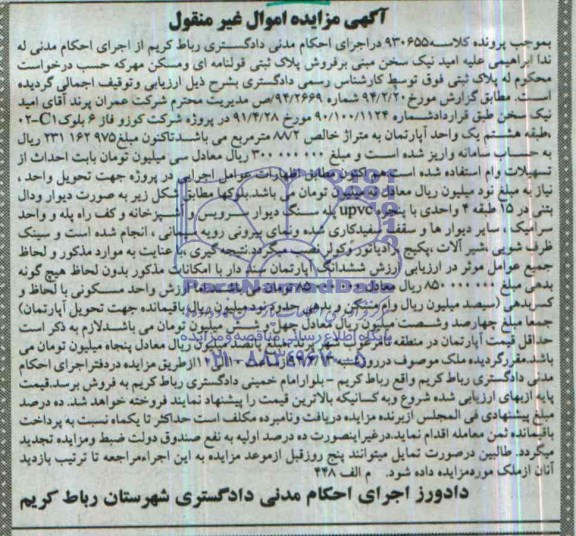 آگهی مزایده اموال غیر منقول
بموجب پرونده کلاسه۹۳۰۶۵۵ دراجرای احکام مدنی دادگستری رباط کریم از اجرای احکام مدنی له
ندا ابراهیمی علیه امید نیک سخن مبنی برفروش پلاک ثبتی قولنامه ای ومسکن مهرکه حسب درخواست
محکوم له پلاک ثبتی فوق توسط کارشناس رسمی دادگستری بشرح ذیل ارزیابی وتوقیف اجمالی گردیده
است. مطابق گزارش مورخ ۹۴/۲/۲۰ شماره ۹۴/۲۶۶۹/ص مدیریت محترم شرکت عمران پرند آقای امید
نیک سخن طبق قراردادشماره ۹۰/۱۰۰/۱۱۲۴ مورخ ۹۱/۴/۲۸ در پروژه شرکت کوزو فاز ۶ بلوک C۱-۰۲
،طبقه هشتم یک واحد آپارتمان به متراژ خالص ۸۸/۲ مترمربع می باشدتاکنون مبلغ ۲۳۱ ۱۶۲ ۹۷۵ ریال
به حساب سامانه واریز شده است و مبلغ ۳۰۰ ریال معادل سی میلیون تومان بابت احداث از
تسهیلات وام استفاده شده است هم اکنون مطابق اظهارات عوامل اجرایی در پروژه جهت تحویل واحد ،
نیاز به مبلغ نود میلیون ریال معادل نه میلیون تومان می باشد.بلوکها مطابق شکل زیر به صورت دیوار ودال
بتنی در ۱۵ طبقه ۴ واحدی با پنجره upvc پله سنگ دیوار سرویس و آشپزخانه و کف راه پله و واحد
سرامیک ، سایر دیوار ها و سقف سفیدکاری شده ونمای بیرونی رویه سیمانی ، انجام شده است و سینک
ظرف شویی ،شیر آلات ،پکیج و رادیاتور وکولر نصب میگردد.نتیجه گیری :با عنایت به موارد مذکور و لحاظ
جمیع عوامل موثر در ارزیابی ارزش ششدانگ آپارتمان سند دار با امکانات مذکور بدون لحاظ هیچ گونه
بدهی مبلغ ۸۵۰۰۰۰۰۰۰ ریال معادل ۸۵ تومان می باشد ارزش واحد مسکونی با لحاظ و
کسربدهی (سیصد میلیون ریال وام مسکن و بدهی حدود نود میلیون ریال باقیمانده جهت تحویل آپارتمان)
جمعا مبلغ چهارصد وشصت میلیون ریال معادل چهل و شش میلیون تومان می باشد.لازم به ذکر است
حداقل قیمت آپارتمان در منطقه ریال معادل پنجاه میلیون تومان می
باشد.مقررگردیده ملک موصوف درروز ازطریق مزایده دردفتراجرای احکام
مدنی دادگستری رباط کریم واقع رباط کریم - بلوارامام خمینی دادگستری رباط کریم به فروش برسد.قیمت
پایه ازبهای ارزیابی شده شروع وبه کسانیکه بالاترین قیمت را پیشنهاد نمایند فروخته خواهد شد. ده درصد
مبلغ پیشنهادی فی المجلس ازبرنده مزایده دریافت ونامبرده مکلف است حداکثر تا یکماه نسبت به پرداخت
باقیمانده ثمن معامله اقدام نماید.درغیراینصورت ده درصد اولیه به نفع صندوق دولت ضبط ومزایده تجدید
میگردد. طالبین درصورت تمایل میتوانند پنج روزقبل ازموعد مزایده به این اجراءمراجعه تا ترتیب بازدید
آنان ازملک موردمزایده داده شود. م الف ۴۴۸
دادورز اجرای احکام مدنی دادگستری شهرستان رباط کریم
پایگاه اطلاع رسانی مناقصه و مزایده
۰۲۱-۸۸۳۴۹۶۷۰-۵